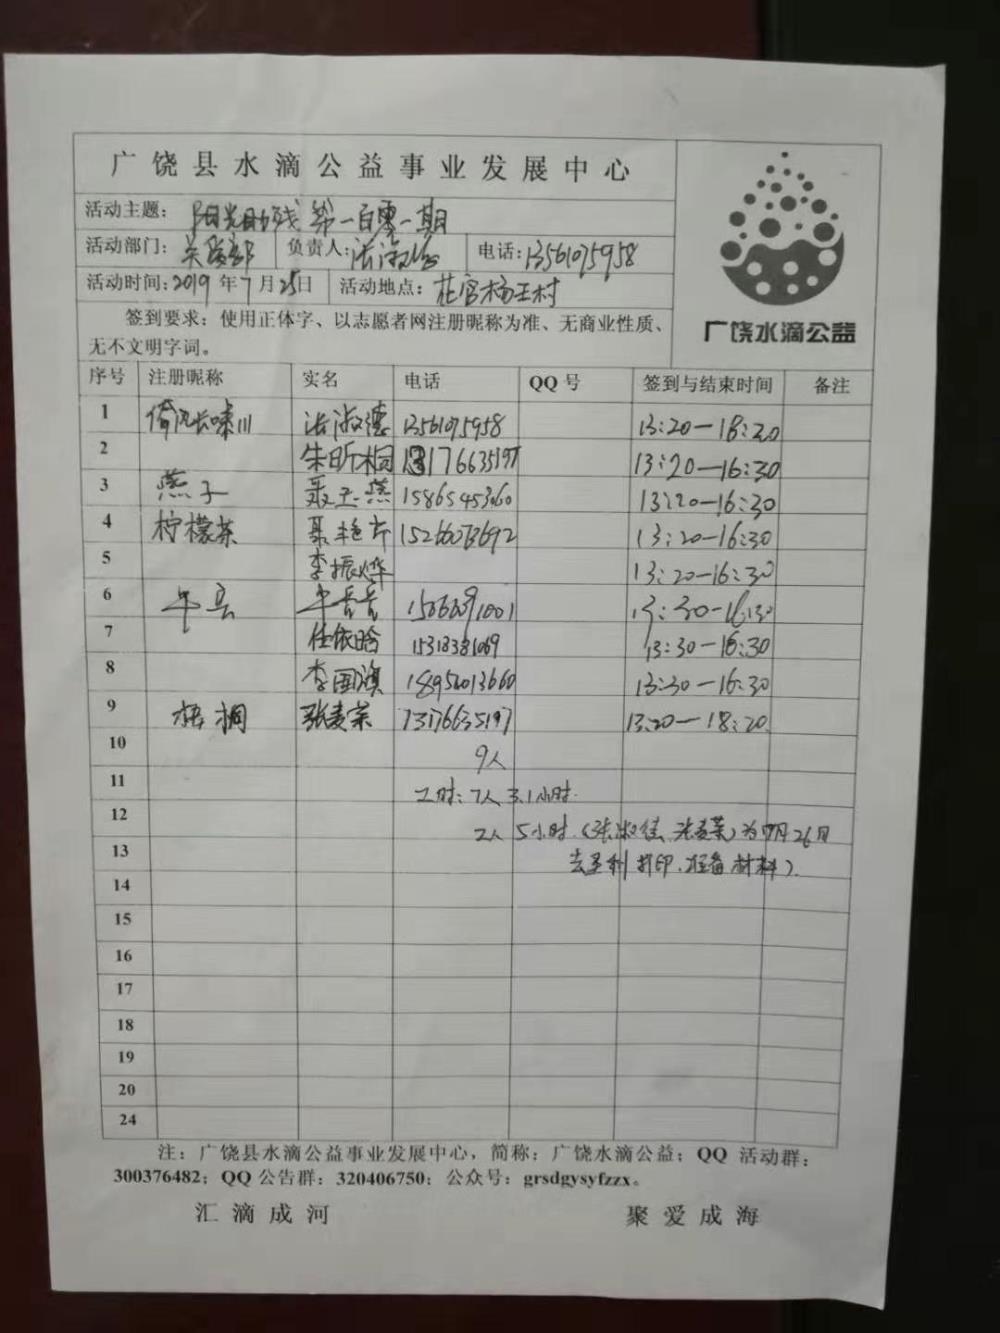 广饶县水滴公益事业发展中心
活动主题：阳光助残 第一百零一期
活动部门： 负责人： 电话：13561075958
活动时间：2019年7月25日 活动地点：花官杨王村
签到要求：使用正体字、以志愿者网注册昵称为准、无商业性质、
无不文明字词。
广饶水滴公益
序号 注册昵称 实名 电话 QQ号 签到与结束时间 备注
1 倚风长啸川 张淑德 13561075958 13:20—18:20
2 朱昕桐 13:20—16:30
3 燕子 聂玉燕 13:20—16:30
4 柠檬茶 聂艳芹 13:20—16:30
5 李振烨 13:20—16:30
6 13:30—16:30
7 任依晗 15318381069 13:30—16:30
8 李国旗 13:30—16:30
9 梧桐 张麦荣 13176635197 13:20—18:20
10 9人
11 工时：7人 3.1小时
12 2人 5小时（张淑德、张麦荣）为7月26日
13 去 打印、准备材料）.
14
15
16
17
18
19
20
24
注：广饶县水滴公益事业发展中心，简称：广饶水滴公益；QQ 活动群：
300376482；QQ公告群：320406750；公众号：grsdgysyfzzx。
汇滴成河 聚爱成海